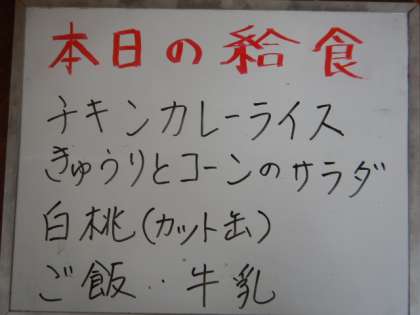 本日の給食
チキンカレーライス
きゅうりとコーンのサラダ
白桃(カット缶)
ご飯・・牛乳